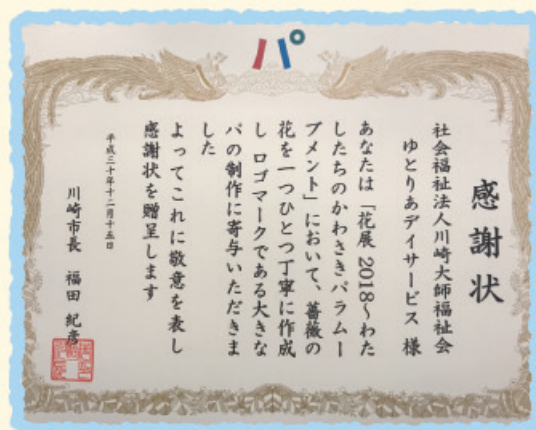 パ
感謝状
社会福祉法人川崎大師福祉会
ゆとりあデイサービス 様
あなたは「花展 2018〜わた
したちのかわさきパラムー
ブメント」において、薔薇の
花を一つひとつ丁寧に作成
し ロゴマークである大きな
パの制作に寄与いただきま
した
よってこれに敬意を表し
感謝状を贈呈します
平成三十年十二月十五日
川崎市長 福田 紀彦